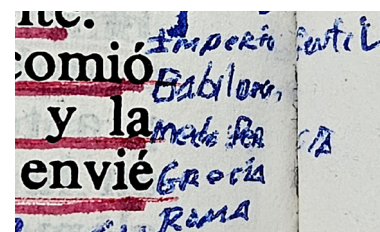 comió
y la
envié
Imperio Gentil
Babilonia,
medo Per CIA
Grecia
ROMA